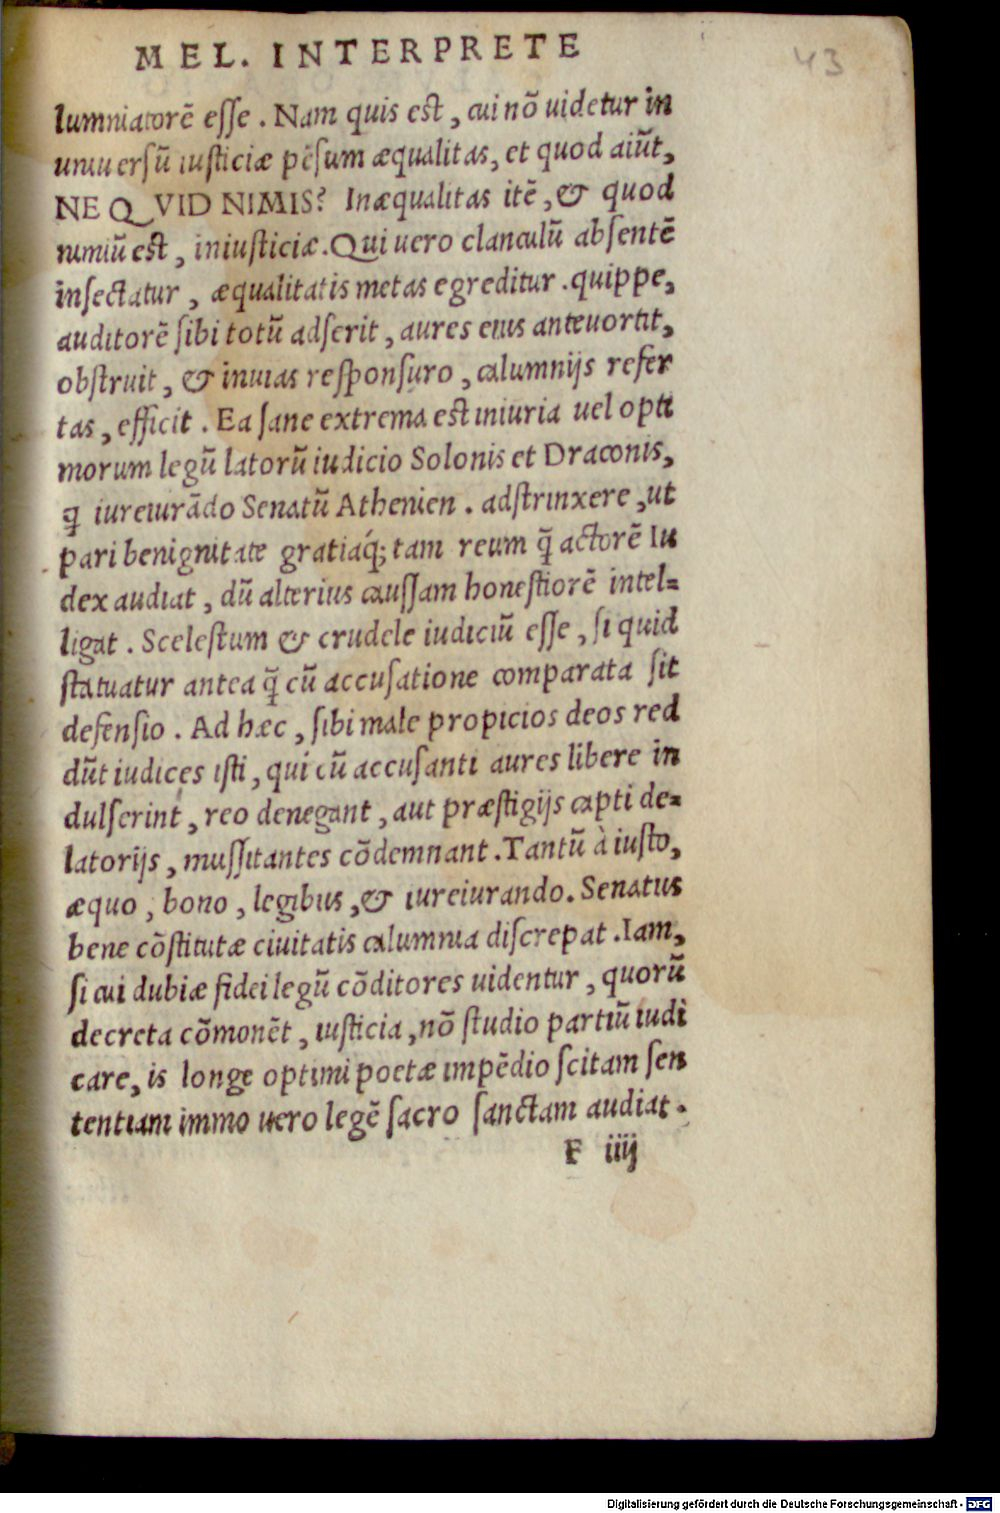 MEL. INTERPRETE
43
lumniatorē eſſe. Nam quis eſt, cui nō uidetur in
uniuerſū iuſticiæ pēſum æqualitas, et quod aiūt,
NE QVID NIMIS? Inæqualitas itē, & quod
nimiū eſt, iniuſticiæ. Qui uero clanculū abſentē
inſectatur, æqualitatis metas egreditur. quippe,
auditorē ſibi totū adſerit, aures eius anteuortit,
obſtruit, & inuias reſponſuro, calumnijs refer
tas, efficit. Ea ſane extrema eſt iniuria uel opti
morum legū latorū iudicio Solonis et Draconis,
q̃ iureiurādo Senatū Athenien. adſtrinxere, ut
pari benignitate gratiaq́; tam reum q̃ actorē Iu
dex audiat, dū alterius cauſſam honeſtiorē intel=
ligat. Sceleſtum & crudele iudiciū eſſe, ſi quid
ſtatuatur antea q̃ cū accuſatione comparata ſit
defenſio. Ad hæc, ſibi male propicios deos red
dūt iudices iſti, qui cū accuſanti aures libere in
dulſerint, reo denegant, aut præſtigijs capti de=
latorijs, muſſitantes cōdemnant. Tantū à iuſto,
æquo, bono, legibus, & iureiurando. Senatus
bene cōſtitutæ ciuitatis calumnia diſcrepat. Iam,
ſi cui dubiæ fidei legū cōditores uidentur, quorū
decreta cōmonēt, iuſticia, nō ſtudio partiū iudi
care, is longe optimi poetæ impēdio ſcitam ſen
tentiam immo uero legē ſacro ſanctam audiat.
F iiij
Digitalisierung gefördert durch die Deutsche Forschungsgemeinschaft - DFG